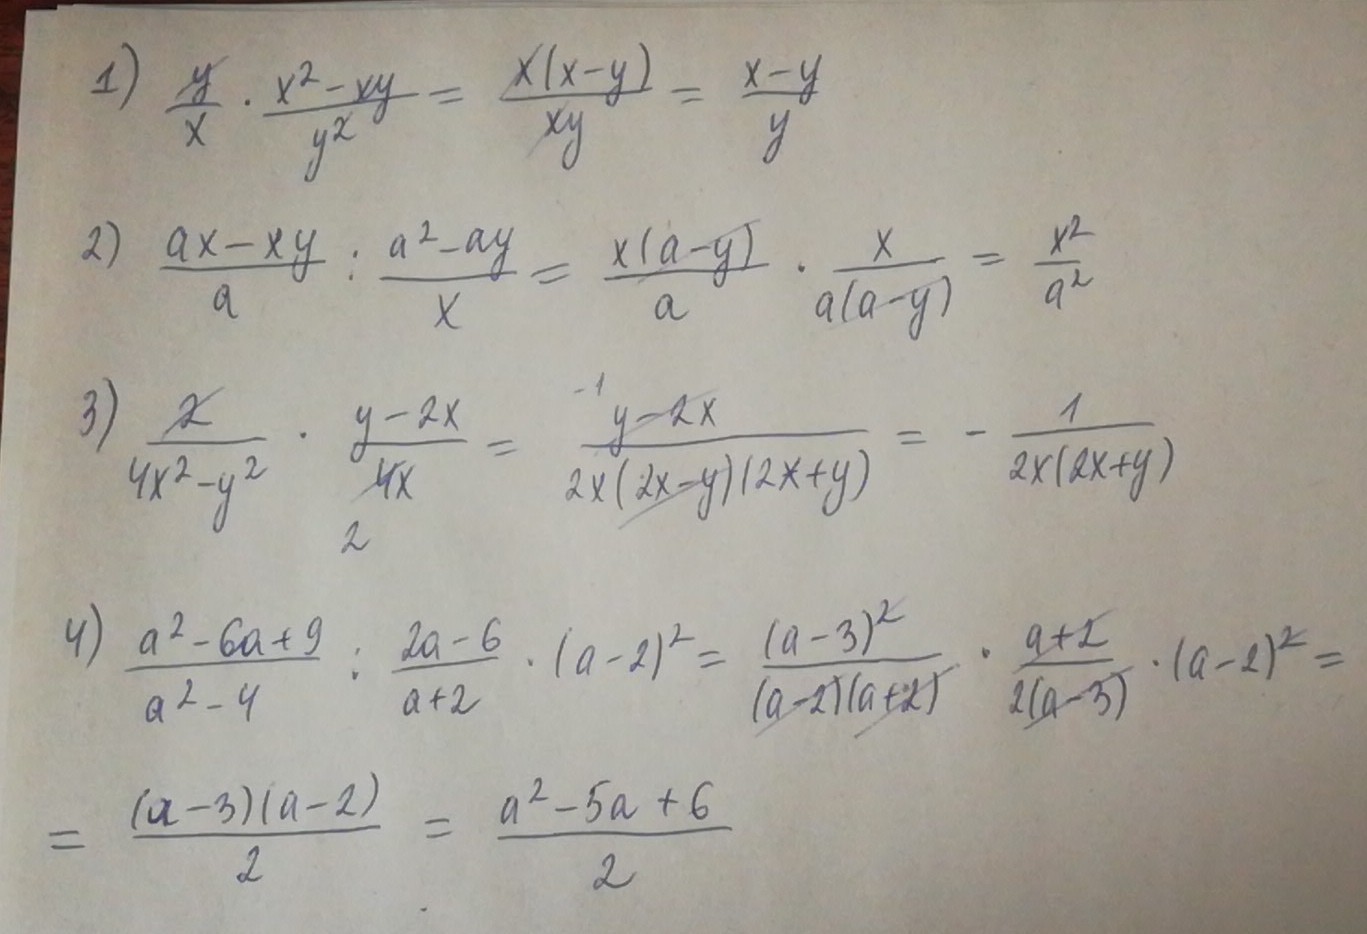 1) y/x · (x² - xy)/y² = x(x-y)/xy = (x-y)/y
2) (ax - xy)/a : (a² - ay)/x = x(a-y)/a · x/a(a-y) = x²/a²
3) 2/(4x² - y²) · (y - 2x)/4x 2 = -1 (y - 2x)/2x(2x-y)(2x+y) = - 1/2x(2x+y)
4) (a² - 6a + 9)/(a² - 4) : (2a - 6)/(a+2) · (a-2)² = (a-3)²/(a-2)(a+2) · (a+2)/2(a-3) · (a-2)² =
= (a-3)(a-2)/2 = (a² - 5a + 6)/2